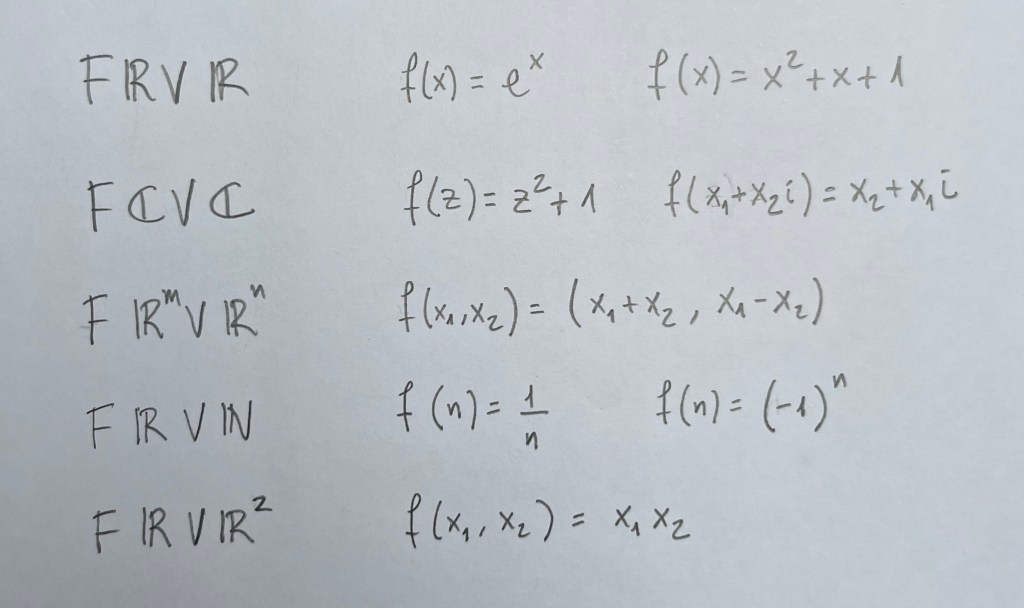 F ℝ V ℝ f(x) = eˣ f(x) = x² + x + 1
F ℂ V ℂ f(z) = z² + 1 f(x₁+x₂i) = x₂ + x₁i
F ℝᵐ V ℝⁿ f(x₁,x₂) = (x₁+x₂, x₁-x₂)
F ℝ V ℕ f(n) = 1/n f(n) = (-1)ⁿ
F ℝ V ℝ² f(x₁, x₂) = x₁x₂